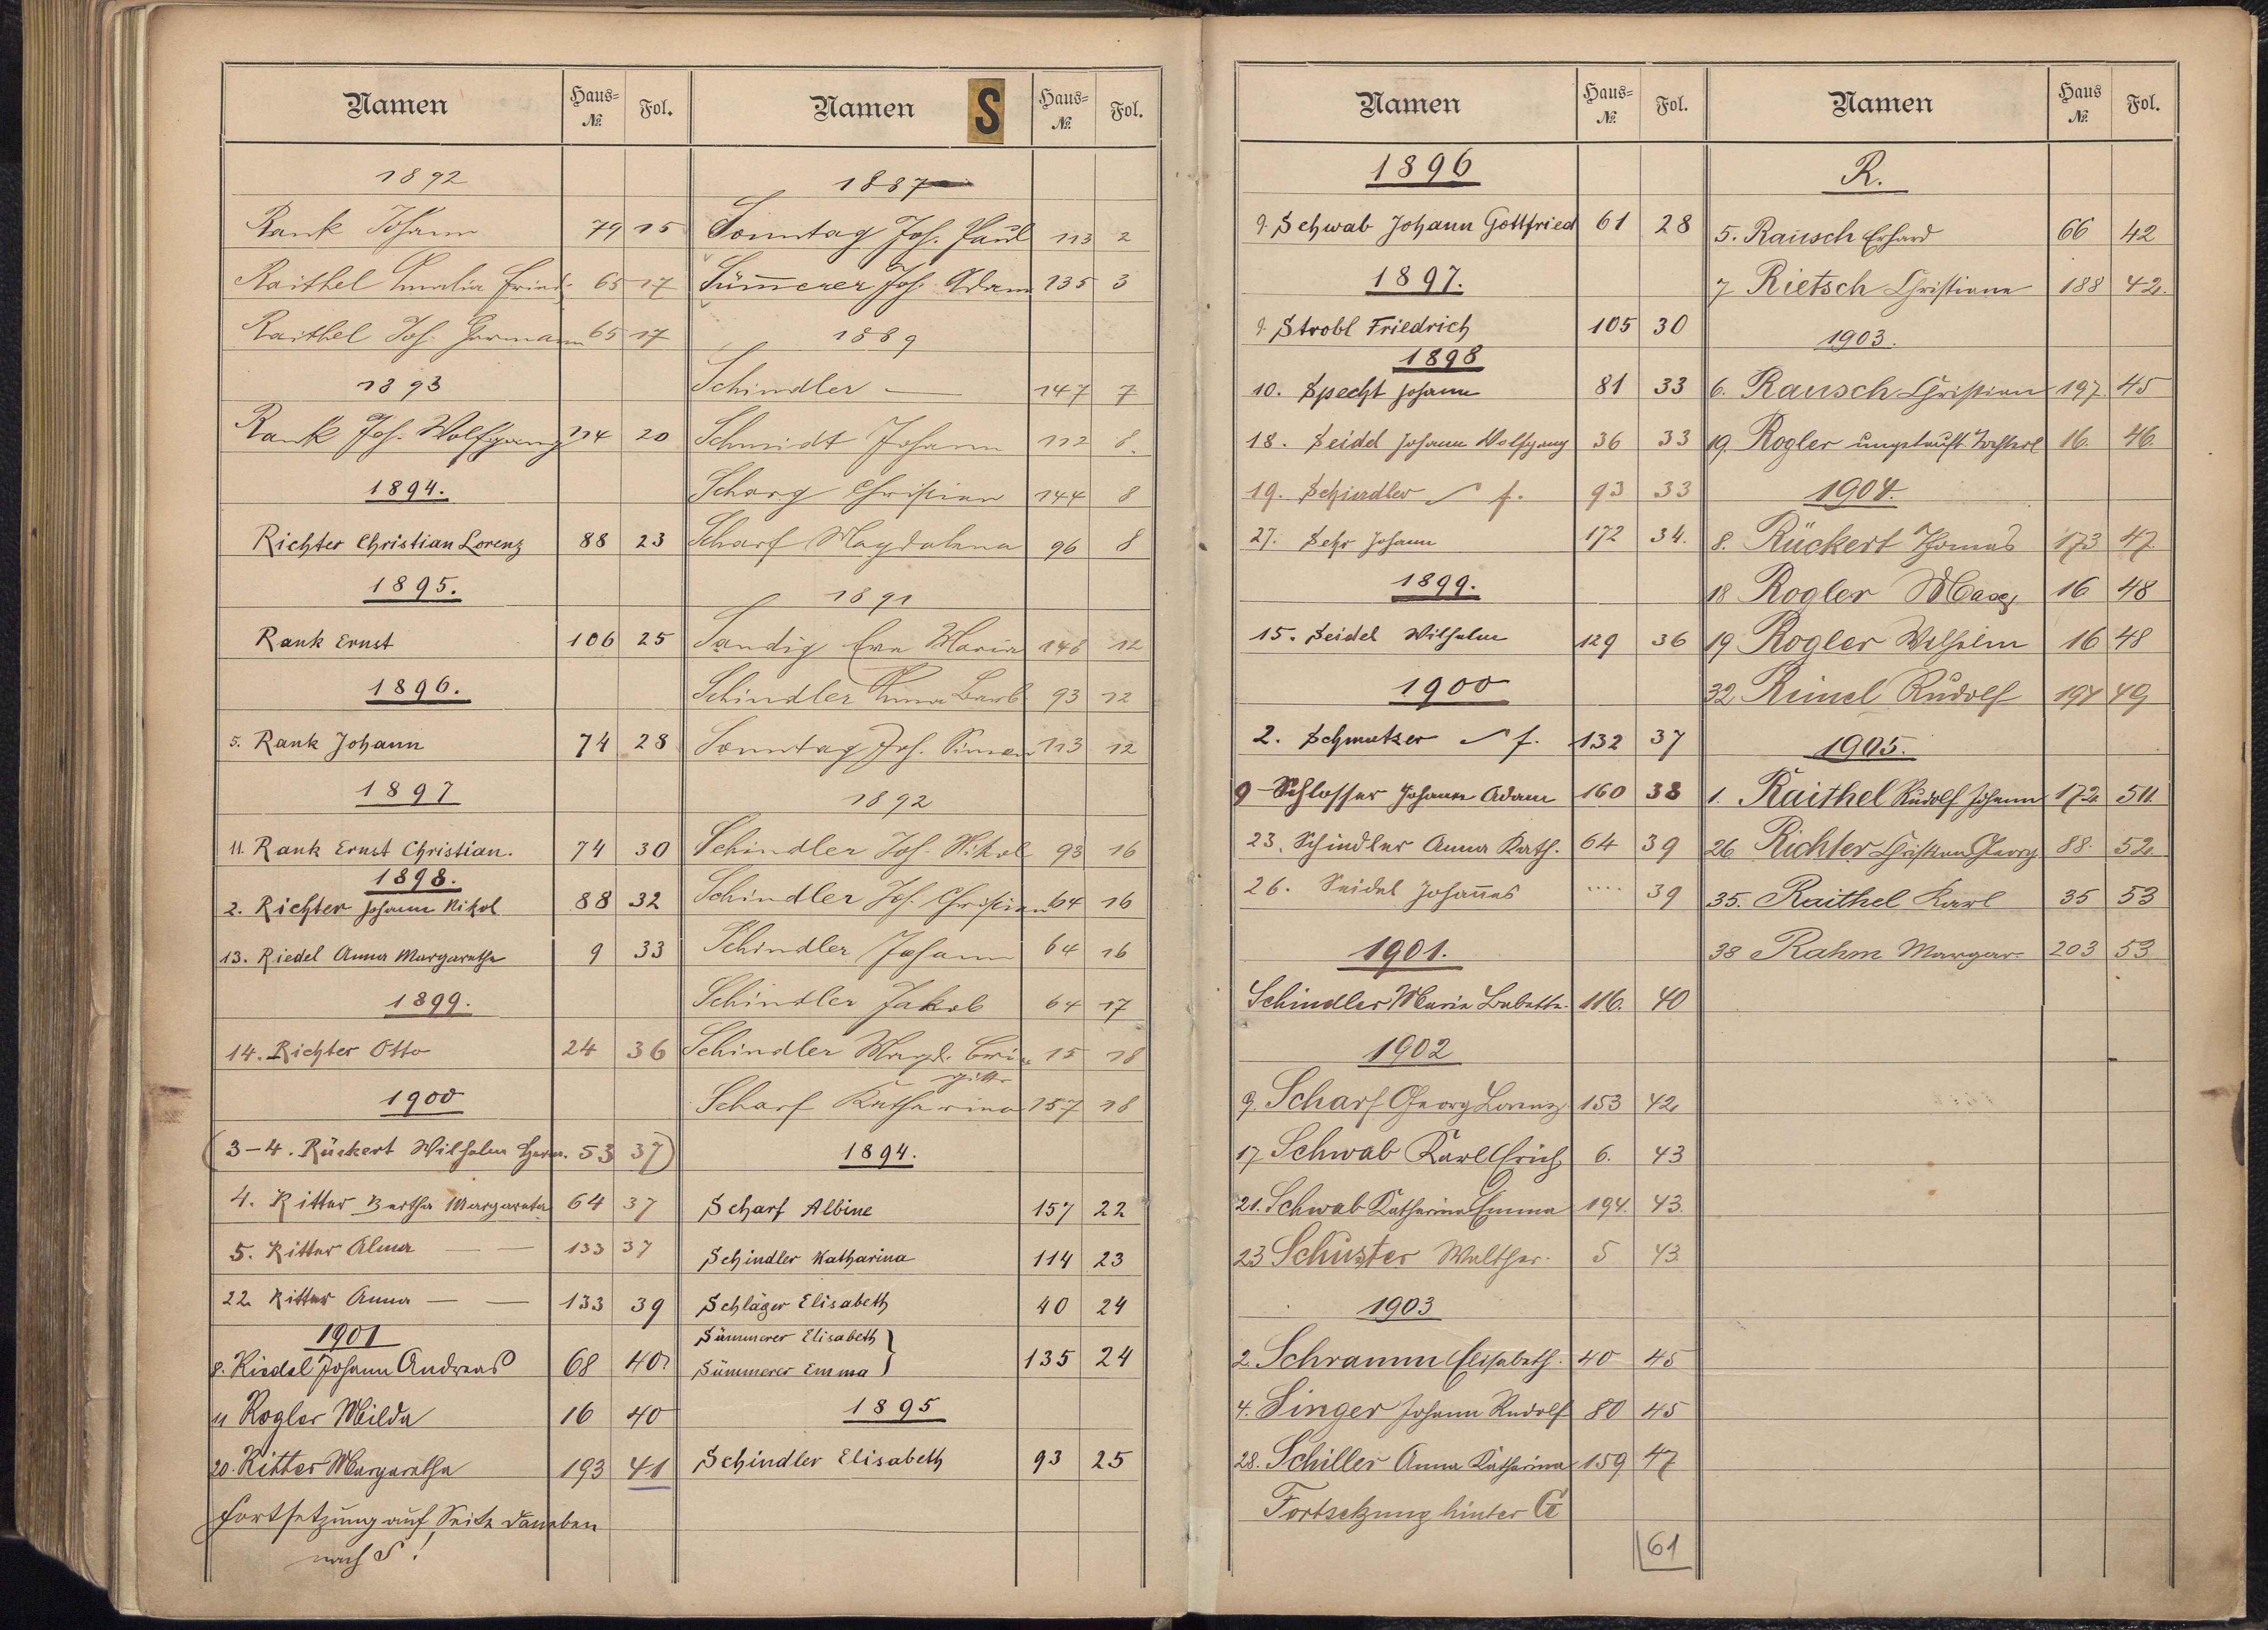 Namen Haus= № Fol.
1892
Rank Johann 79 15
Raithel Amalia Fried. 65 17
Raithel Joh. Hermann 65 17
1893
Rank Joh. Wolfgang 114 20
1894.
Richter Christian Lorenz 88 23
1895.
Rank Ernst 106 25
1896.
5. Rank Johann 74 28
1897
11. Rank Ernst Christian. 74 30
1898.
2. Richter Johann Nikol 88 32
13. Riedel Anna Margaretha 9 33
1899.
14. Richter Otto 24 36
1900
(3-4. Rückert Wilhelm Herm. 53 37)
4. Ritter Bertha Margareta 64 37
5. Ritter Alma — — 133 37
22. Ritter Anna — — 133 39
1901
8. Riedel Johann Andreas 68 40
11 Rogler Milda 16 40
20. Ritter Margaretha 193 41
Fortsetzung auf Seite daneben
nach S!
Namen S Haus= № Fol.
1887
Sonntag Joh. Paul 113 2
Sümerer Joh. Adam 135 3
1889
Schindler — 147 7
Schmidt Johann 112 8.
Scharf Christian 144 8
Scharf Magdalena 96 8
1891
Sandig Eva Maria 146 12
Schindler Anna Barb. 93 12
Sonntag Joh. Simon 113 12
1892
Schindler Joh. Nikol 93 16
Schindler Joh. Christian 64 16
Schindler Johann 64 16
Schindler Jakob 64 17
Schindler Magd. 15 18
Scharf Katharina 157 18
1894.
Scharf Albine 157 22
Schindler Katharina 114 23
Schläger Elisabeth 40 24
Sümmerer Elisabeth }
Sümmerer Emma } 135 24
1895
Schindler Elisabeth 93 25
Namen Haus= № Fol.
1896
9. Schwab Johann Gottfried 61 28
1897.
9. Strobl Friedrich 105 30
1898
10. Specht Johann 81 33
18. Seidel Johann Wolfgang 36 33
19. Schindler f. 93 33
27. Sehr Johann 172 34.
1899.
15. Seidel Wilhelm 129 36
1900
2. Schmutzer f. 132 37
9 Schlosser Johann Adam 160 38
23. Schindler Anna Kath. 64 39
26. Seidel Johannes .... 39
1901.
Schindler Maria Babetta. 116. 40
1902
9. Scharf Georg Lorenz 153 42
17 Schwab Karl Erich 6. 43
21. Schwab Katharina Emma 194. 43.
23 Schuster Walther. 5 43
1903
2. Schramm Elisabeth. 40 45
4. Singer Johann Rudolf 80 45
28. Schiller Anna Katharina 159 47
Fortsetzung hinter G
61
Namen Haus № Fol.
R.
5. Rausch Erhard 66 42
7 Rietsch Christiane 188 42.
1903.
6. Rausch Christian 197. 45
19. Rogler ungetauft. 16. 46.
1904.
8. Rückert Thomas 173 47.
18 Rogler Max 16 48
19 Rogler Wilhelm 16 48
32. Rudolf 49
1905.
1. Raithel Rudolf Johann 172.
26 Richter Christian Georg 88. 52.
35. Raithel Karl 35 53
38 Rahm Margar. 203 53